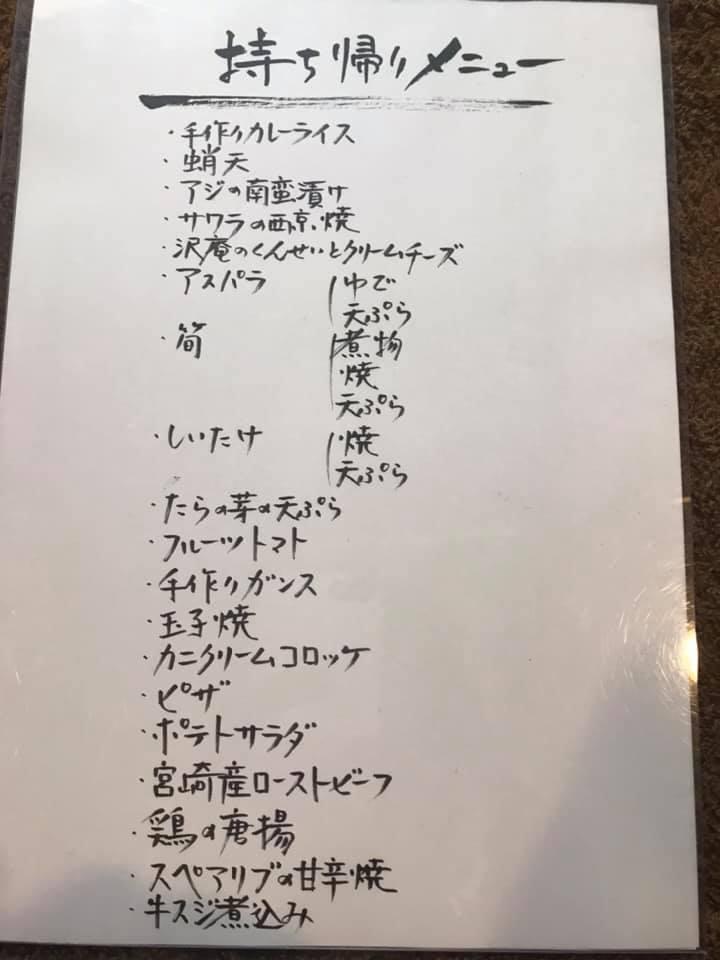 持ち帰りメニュー
・手作りカレーライス
・蛸天
・アジの南蛮漬け
・サワラの西京焼
・沢庵のくんせいとクリームチーズ
・アスパラ ゆで
天ぷら
・筍 煮物
焼
天ぷら
・しいたけ 焼
天ぷら
・たらの芽の天ぷら
・フルーツトマト
・手作りガンス
・玉子焼
・カニクリームコロッケ
・ピザ
・ポテトサラダ
・宮崎産ローストビーフ
・鶏の唐揚
・スペアリブの甘辛焼
・牛スジ煮込み